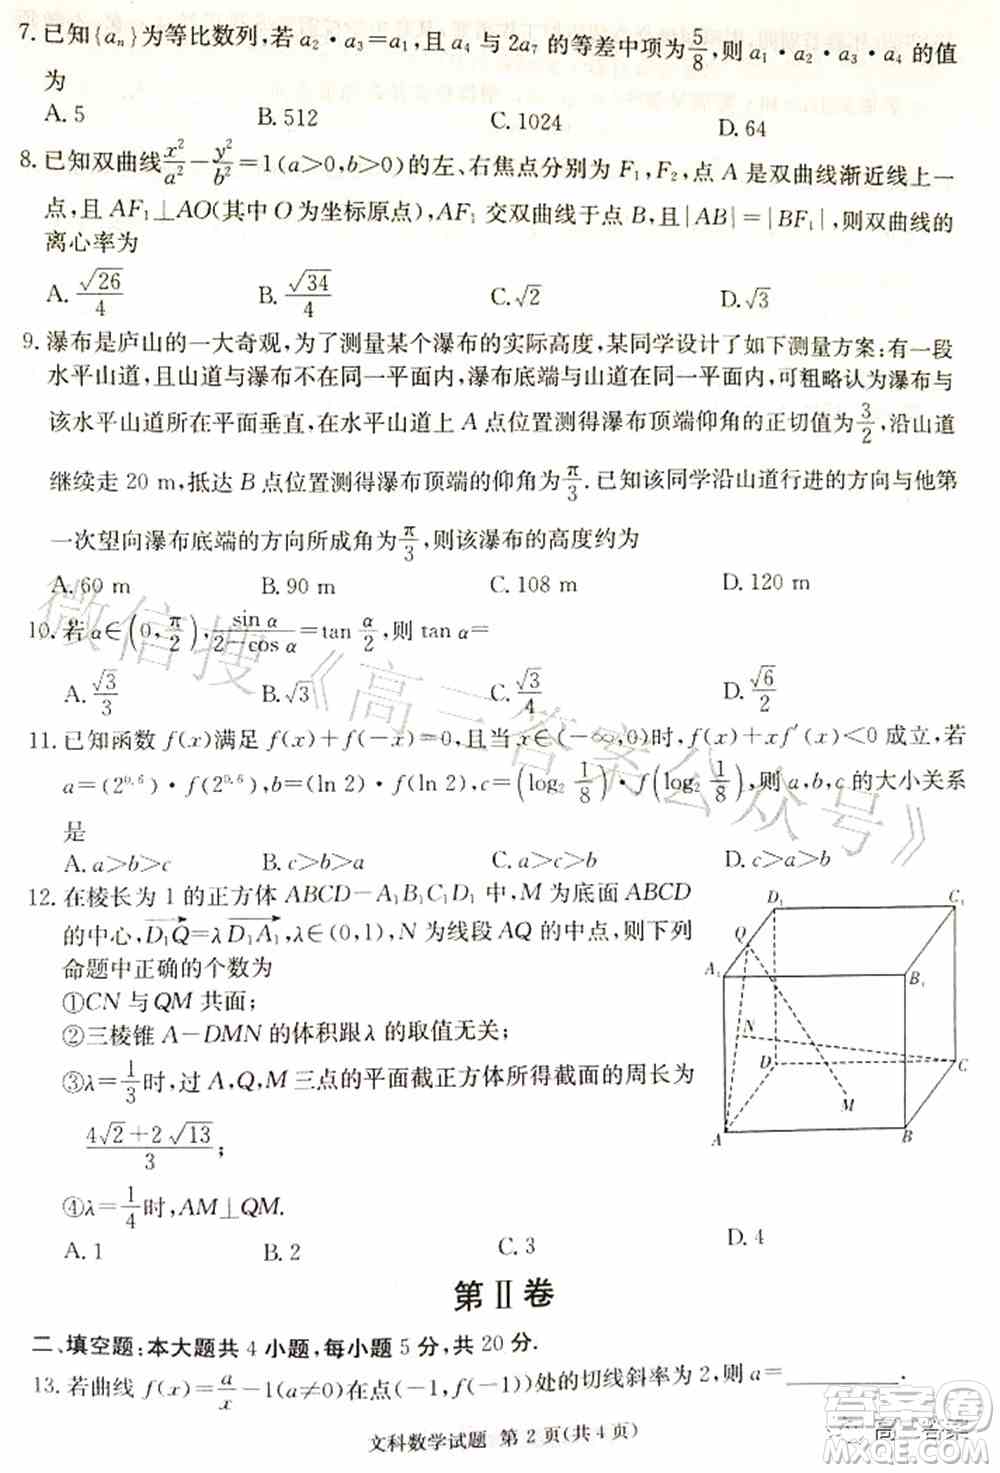 7. 已知{aₙ}为等比数列,若 a₂·a₃=a₁,且 a₄ 与 2a₇ 的等差中项为 5/8,则 a₁·a₂·a₃·a₄ 的值
为
A. 5 B. 512 C. 1024 D. 64
8. 已知双曲线 x²/a² − y²/b² =1(a>0,b>0)的左、右焦点分别为 F₁,F₂,点 A 是双曲线渐近线上一
点,且 AF₁⊥AO(其中 O 为坐标原点),AF₁ 交双曲线于点 B,且|AB|=|BF₁|,则双曲线的
离心率为
A. √26/4 B. √34/4 C. √2 D. √3
9. 瀑布是庐山的一大奇观,为了测量某个瀑布的实际高度,某同学设计了如下测量方案:有一段
水平山道,且山道与瀑布不在同一平面内,瀑布底端与山道在同一平面内,可粗略认为瀑布与
该水平山道所在平面垂直,在水平山道上 A 点位置测得瀑布顶端仰角的正切值为 3/2,沿山道
继续走 20 m,抵达 B 点位置测得瀑布顶端的仰角为 π/3.已知该同学沿山道行进的方向与他第
一次望向瀑布底端的方向所成角为 π/3,则该瀑布的高度约为
A. 60 m B. 90 m C. 108 m D. 120 m
10. 若 α∈(0,π/2),sin α/(2−cos α)=tan α/2,则 tan α=
A. √3/3 B. √3 C. √3/4 D. √6/2
11. 已知函数 f(x)满足 f(x)+f(−x)=0,且当 x∈(−∞,0)时,f(x)+xf′(x)<0 成立,若
a=(2⁰·⁶)·f(2⁰·⁶),b=(ln 2)·f(ln 2),c=(log₂ 1/8)·f(log₂ 1/8),则 a,b,c 的大小关系
是
A. a>b>c B. c>b>a C. a>c>b D. c>a>b
12. 在棱长为 1 的正方体 ABCD−A₁B₁C₁D₁ 中,M 为底面 ABCD
的中心,D₁Q=λD₁A₁,λ∈(0,1),N 为线段 AQ 的中点,则下列
命题中正确的个数为
①CN 与 QM 共面;
②三棱锥 A−DMN 的体积跟 λ 的取值无关;
③λ=1/3时,过 A,Q,M 三点的平面截正方体所得截面的周长为
(4√2+2√13)/3;
④λ=1/4时,AM⊥QM.
A. 1 B. 2 C. 3 D. 4
D₁ C₁
Q
A₁ B₁
N
D C
M
A B
第Ⅱ卷
二、填空题:本大题共 4 小题,每小题 5 分,共 20 分.
13. 若曲线 f(x)=a/x−1(a≠0)在点(−1,f(−1))处的切线斜率为 2,则 a=________.
文科数学试题 第 2 页(共 4 页)
微信搜《高三答案公众号》
答案圈
MXQE.COM